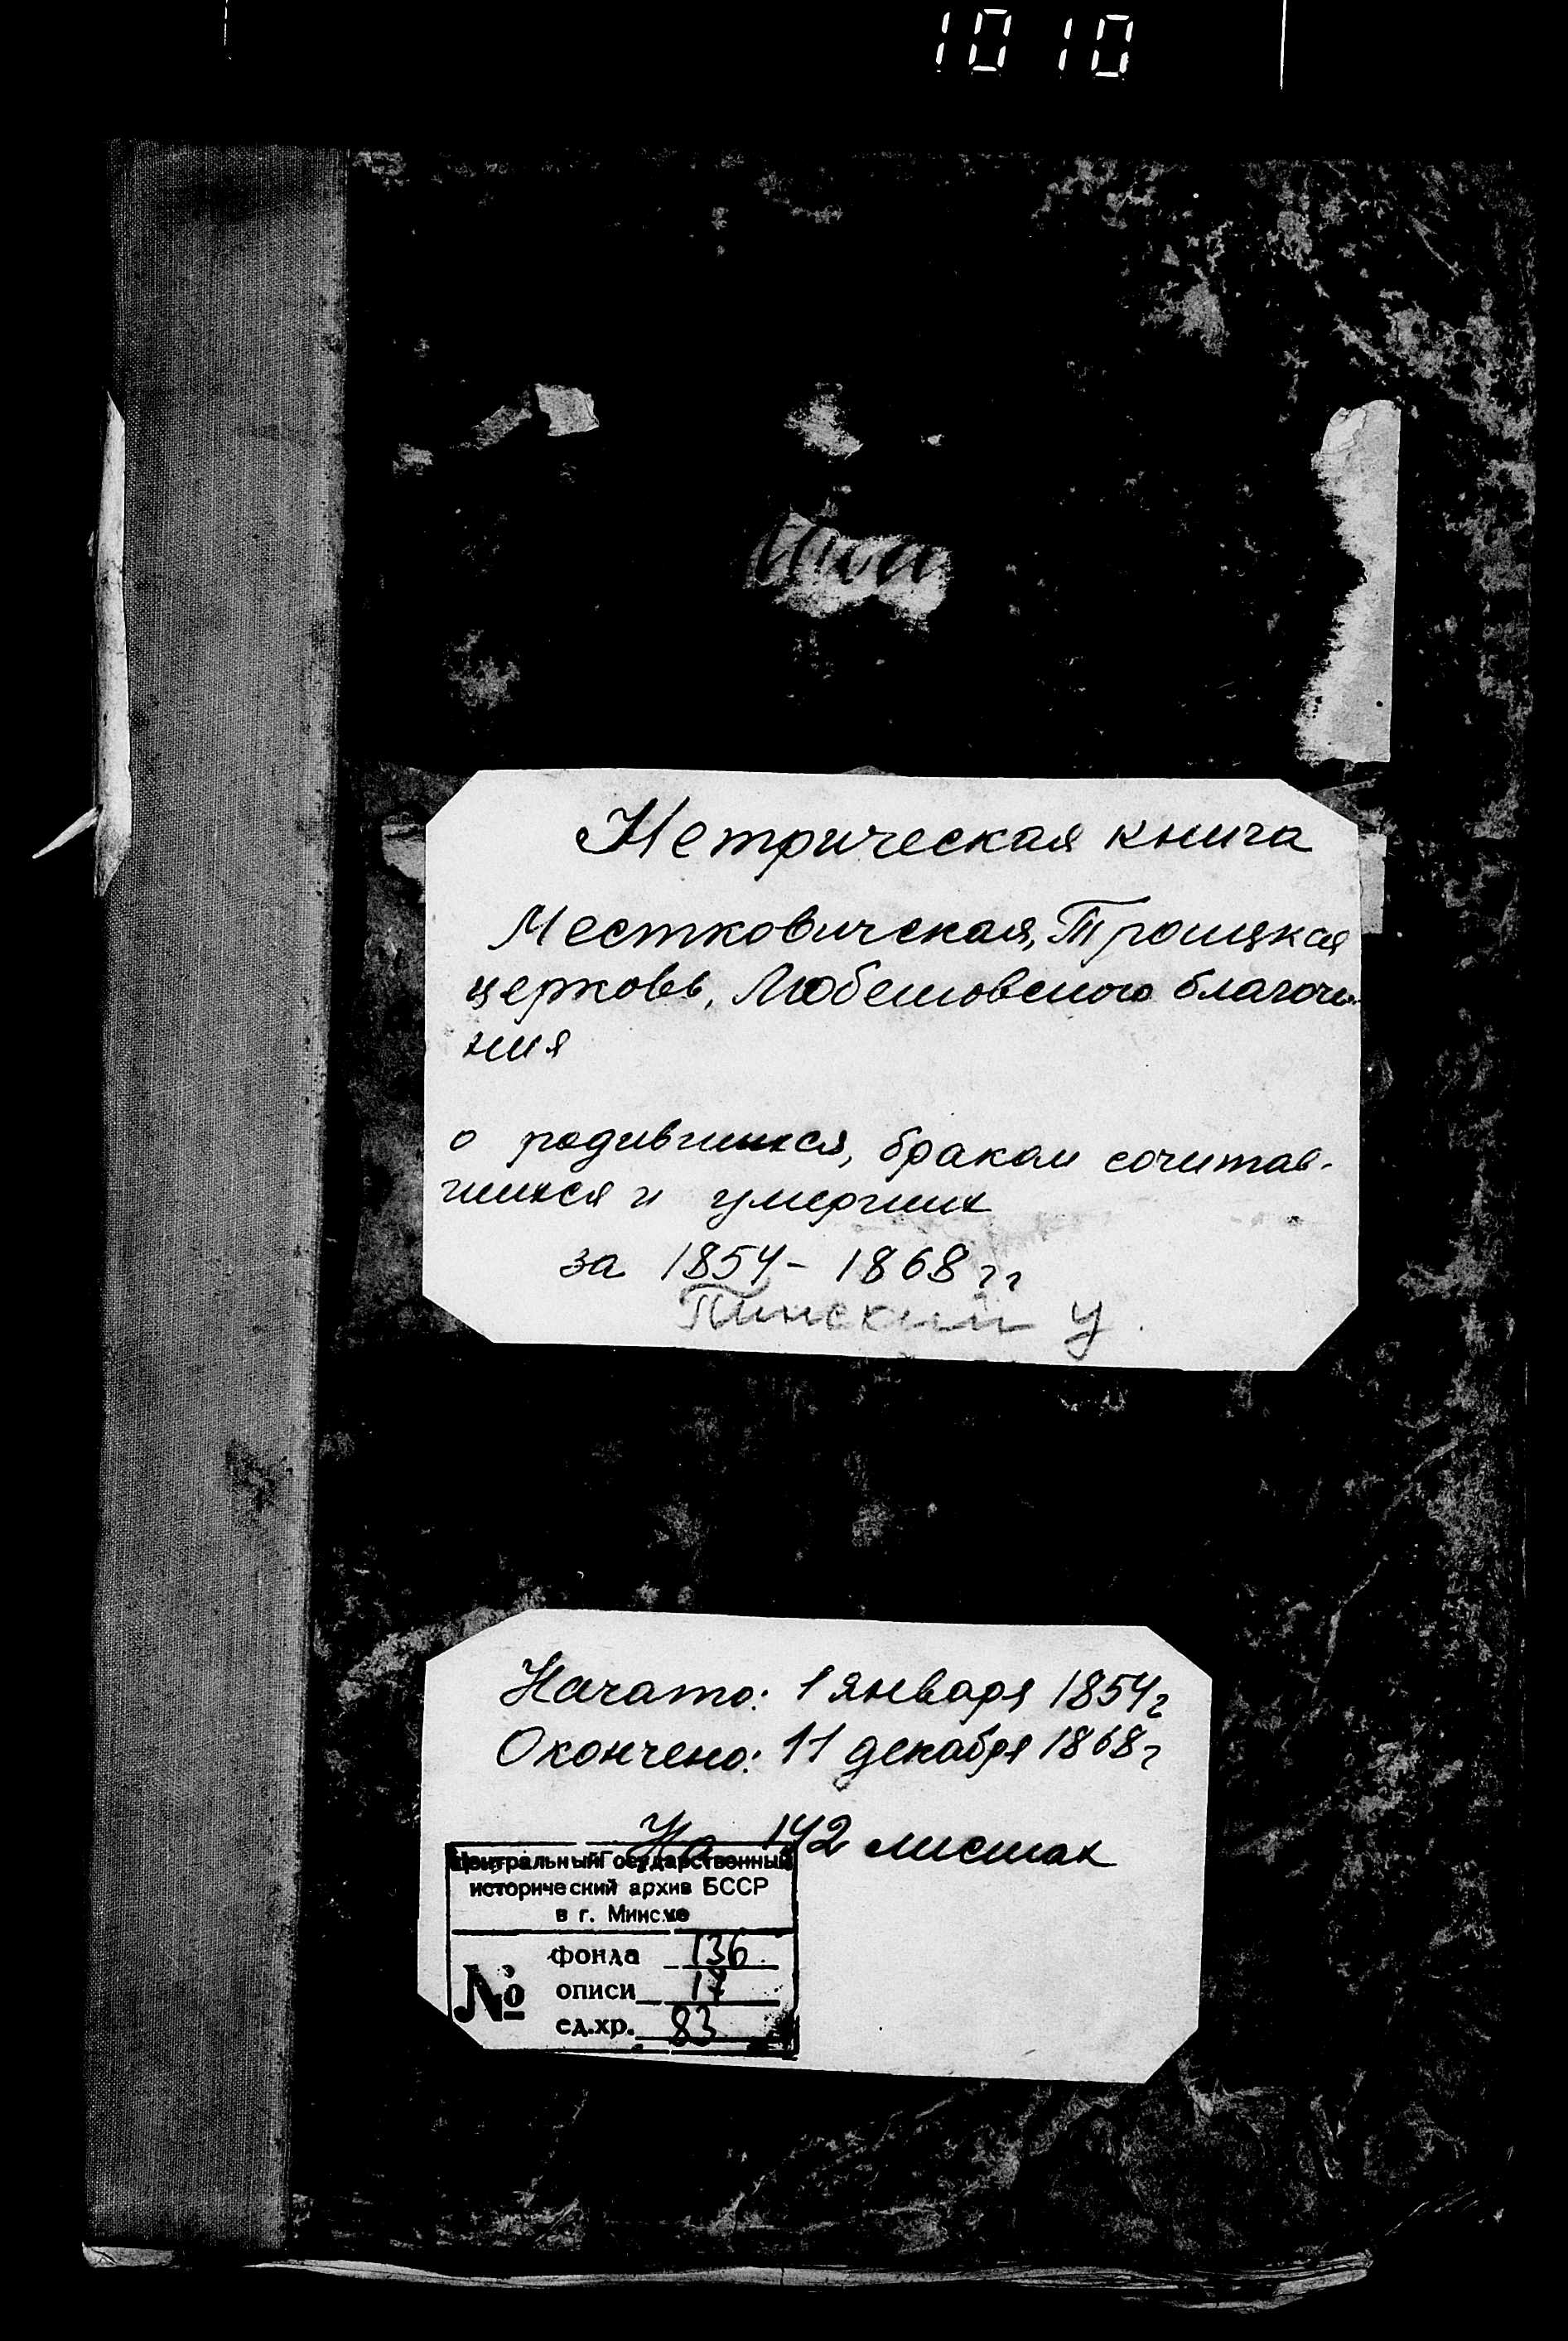 10 10
Метрическая книга
Местковичская, Троицкая
церковь, Любешовского благочи-
ния
о родившихся, браком сочитав-
шихся и умерших
за 1854- 1868 гг
Пинский у.
Начато: 1 января 1854г
Окончено: 11 декабря 1868г
На 142 листах
Центральный Государственный
исторический архив БССР
в г. Минске
№
фонда 136
описи 17
ед.хр. 83